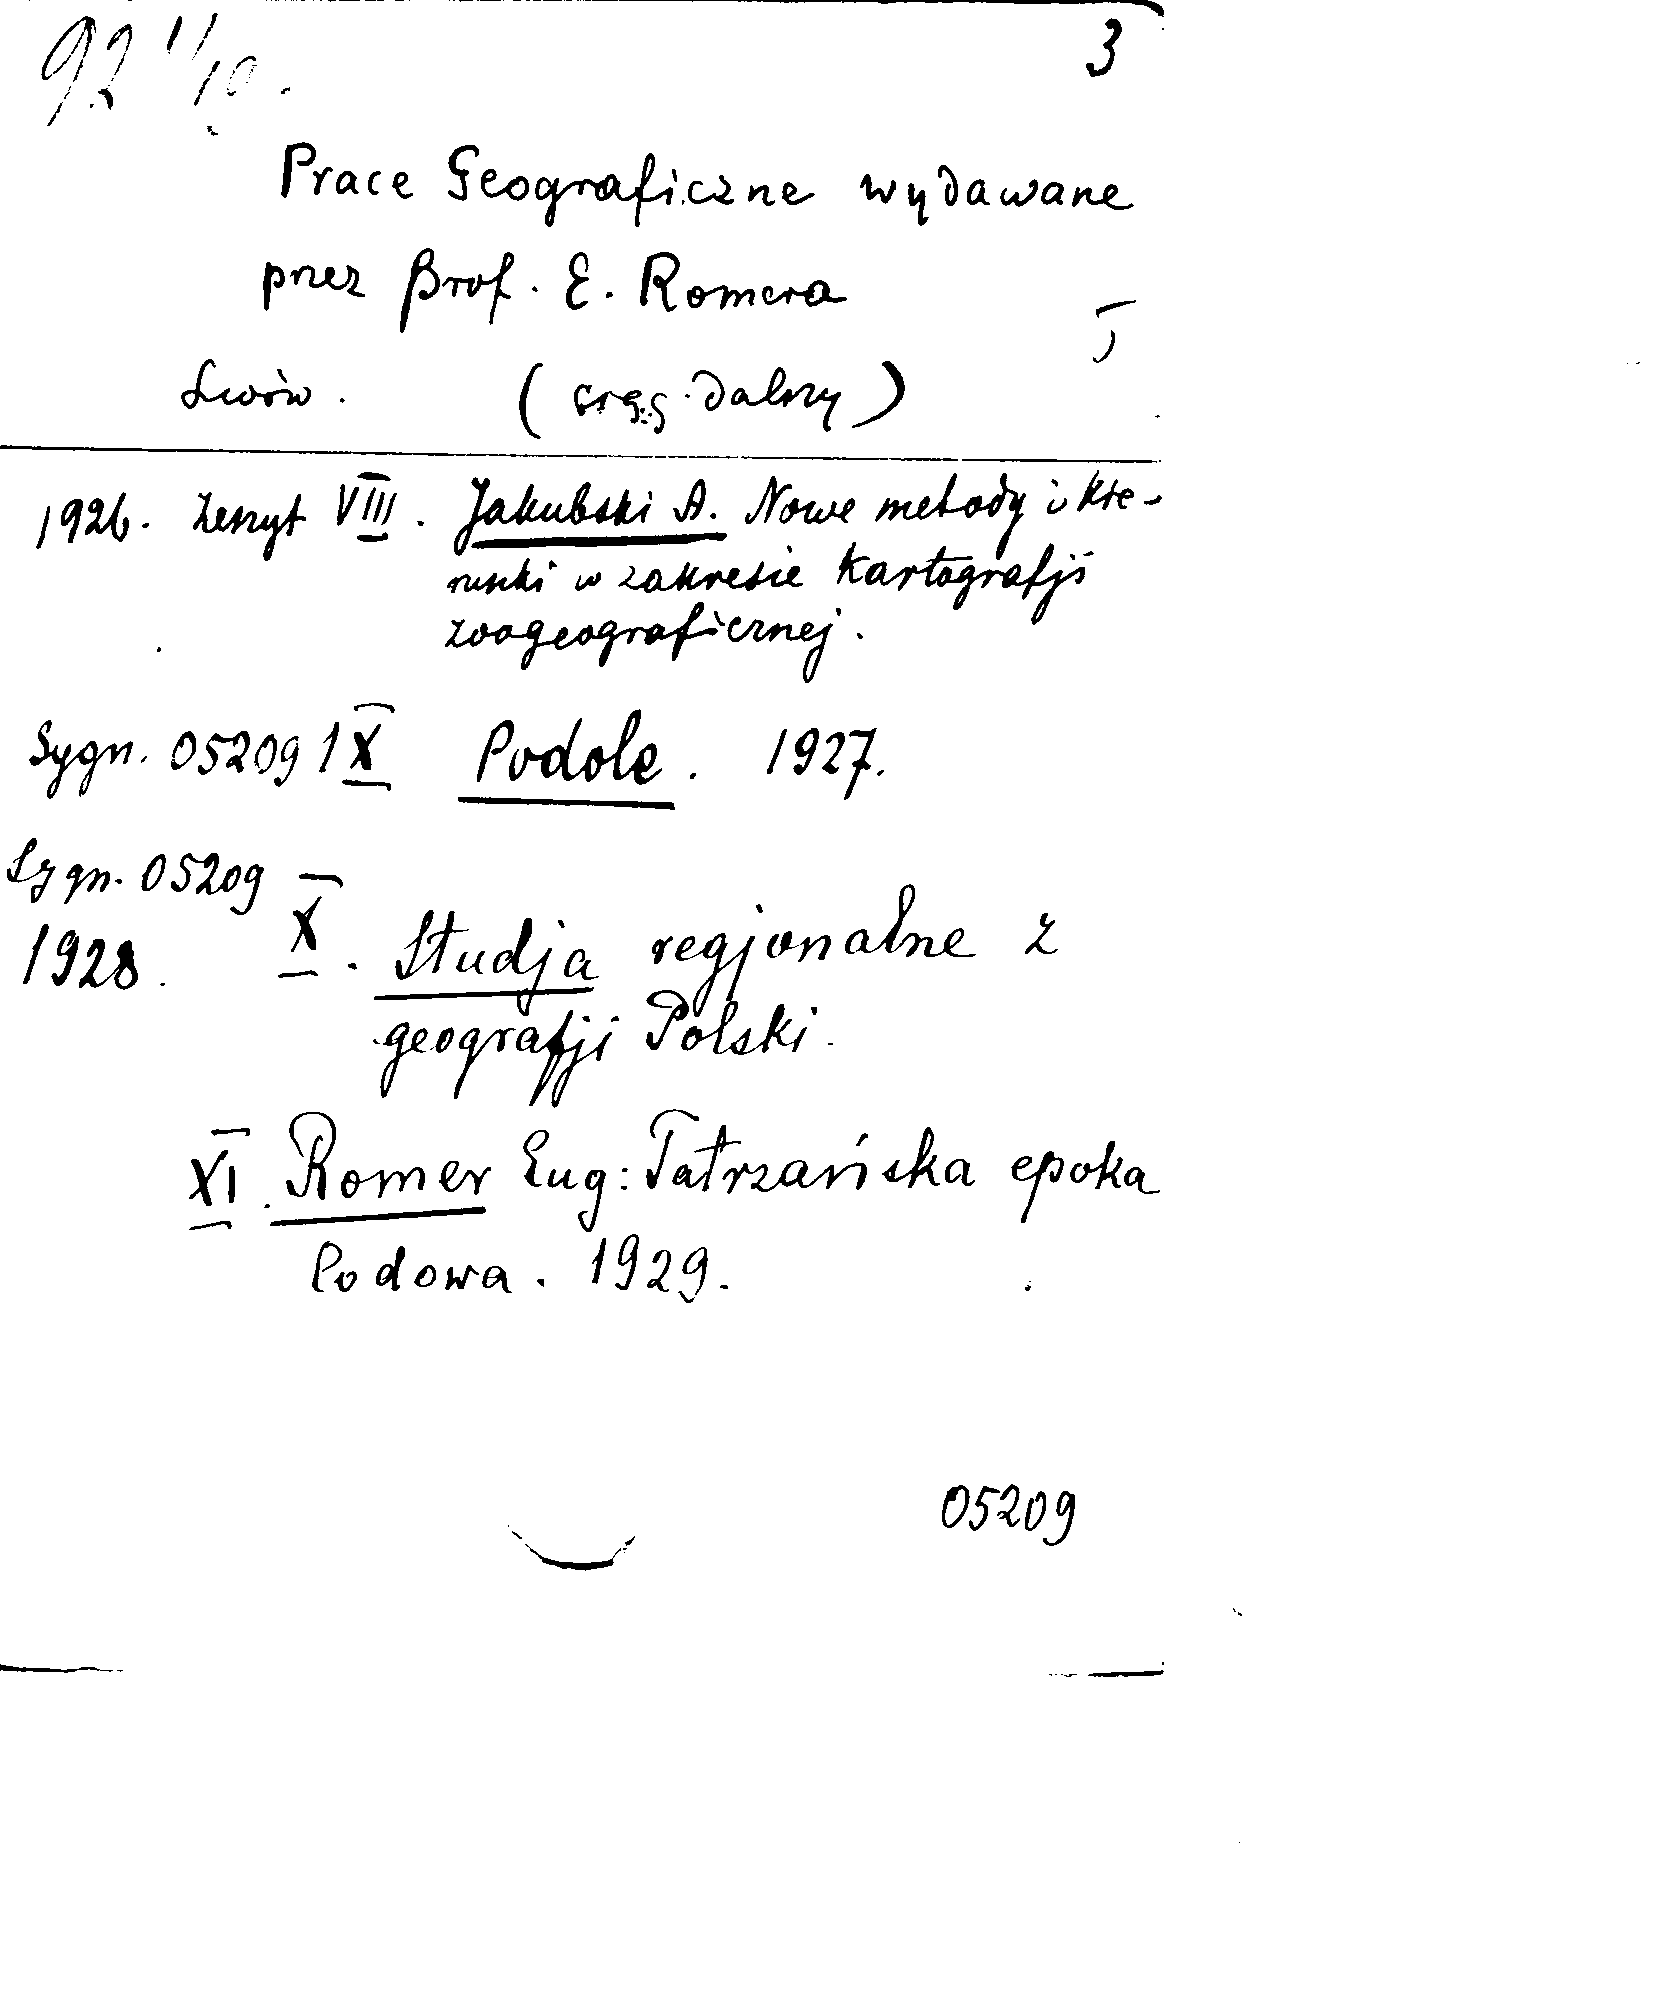 92 1/10.
3
Prace Geograficzne wydawane
przez Prof. E. Romera
Lwów. (ciąg dalszy)
1926. Zeszyt VIII. Jakubski A. Nowe metody i kie-
runki w zakresie kartografji
zoogeograficznej.
Sygn. 05209 IX Podole. 1927.
Sygn. 05209
1928. X. Studja regjonalne z
geografji Polski.
XI. Romer Eug: Tatrzańska epoka
lodowa. 1929.
05209